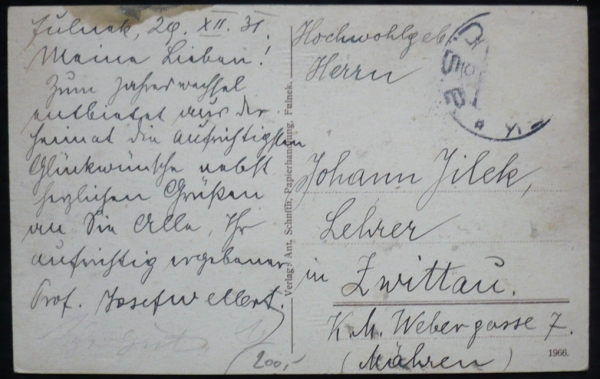 Fulnek, 29. XII. 31.
Meine Lieben!
Zum Jahreswechsel
entbietet aus der
Heimat die aufrichtigsten
Glückwünsche nebst
herzlichen Grüßen
an Sie Alle, Ihr
aufrichtig ergebener
Prof. Josef Wellert.
200,-
Verlag Ant. Schmith, Papierhandlung, Fulnek.
Hochwohlgeb.
Herrn
Johann Jilek,
Lehrer
in Zwittau.
Webergasse 7.
(Mähren)
1966.